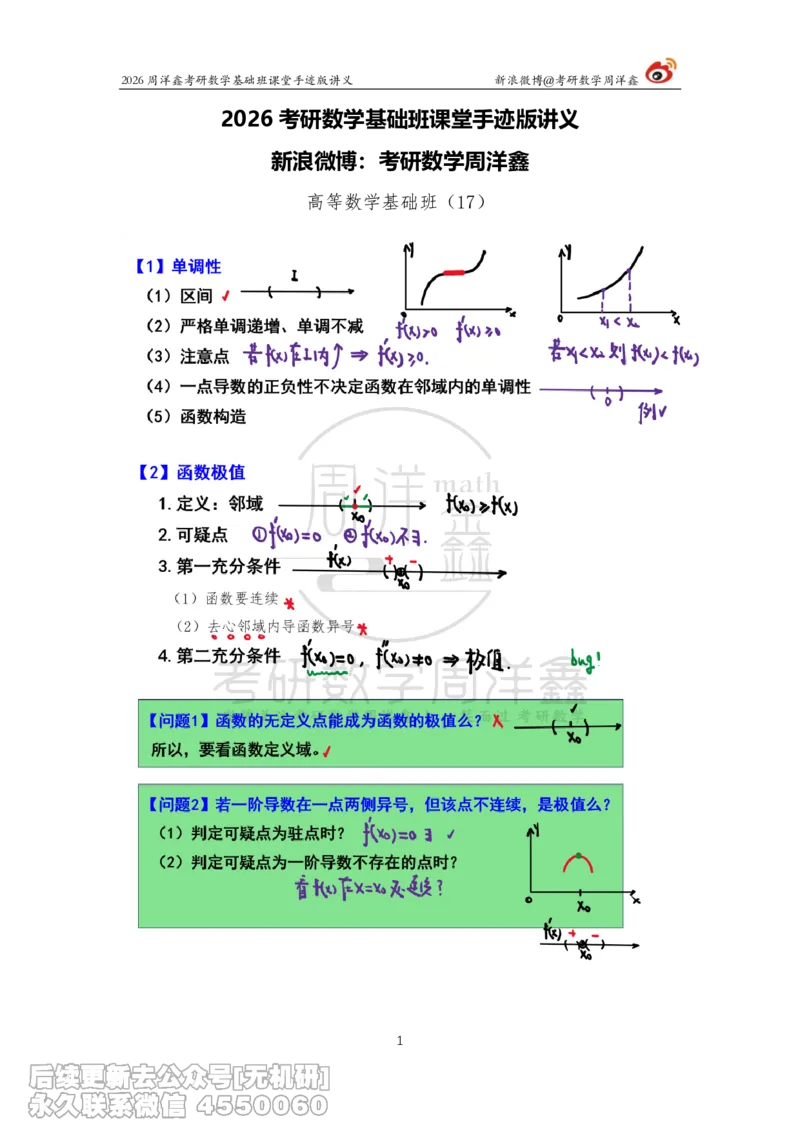 2026 周洋鑫考研数学基础班课堂手迹版讲义 新浪微博@考研数学周洋鑫
2026 考研数学基础班课堂手迹版讲义
新浪微博：考研数学周洋鑫
高等数学基础班（17）
【1】单调性
（1）区间 ✓ I
（2）严格单调递增、单调不减 f'(x)>0 f'(x)≥0
y
o
x
y
o
x₁ < x₂
x
（3）注意点 若f(x)在I内↑ ⇒ f'(x)≥0.
若x₁<x₂ 则 f(x₁)<f(x₂)
（4）一点导数的正负性不决定函数在邻域内的单调性
0
例✓
（5）函数构造
周洋鑫 math
【2】函数极值
1. 定义：邻域 x₀ f(x₀)≥f(x)
2. 可疑点 ①f'(x₀)=0 ②f'(x₀)不∃.
3. 第一充分条件 f'(x) + - x₀
（1）函数要连续
（2）去心邻域内导函数异号
4. 第二充分条件 f'(x₀)=0, f''(x₀)≠0 ⇒ 极值. bug!
考研数学周洋鑫
【问题1】函数的无定义点能成为函数的极值么？ ✗ x₀
所以，要看函数定义域。✓
【问题2】若一阶导数在一点两侧异号，但该点不连续，是极值么？
（1）判定可疑点为驻点时？ f'(x₀)=0 ∃ ✓
（2）判定可疑点为一阶导数不存在的点时？
看f(x)在x=x₀处连续？
y
o
x₀
x
f'(x) + -
x₀
1
后续更新去公众号[无机研]
永久联系微信 4550060